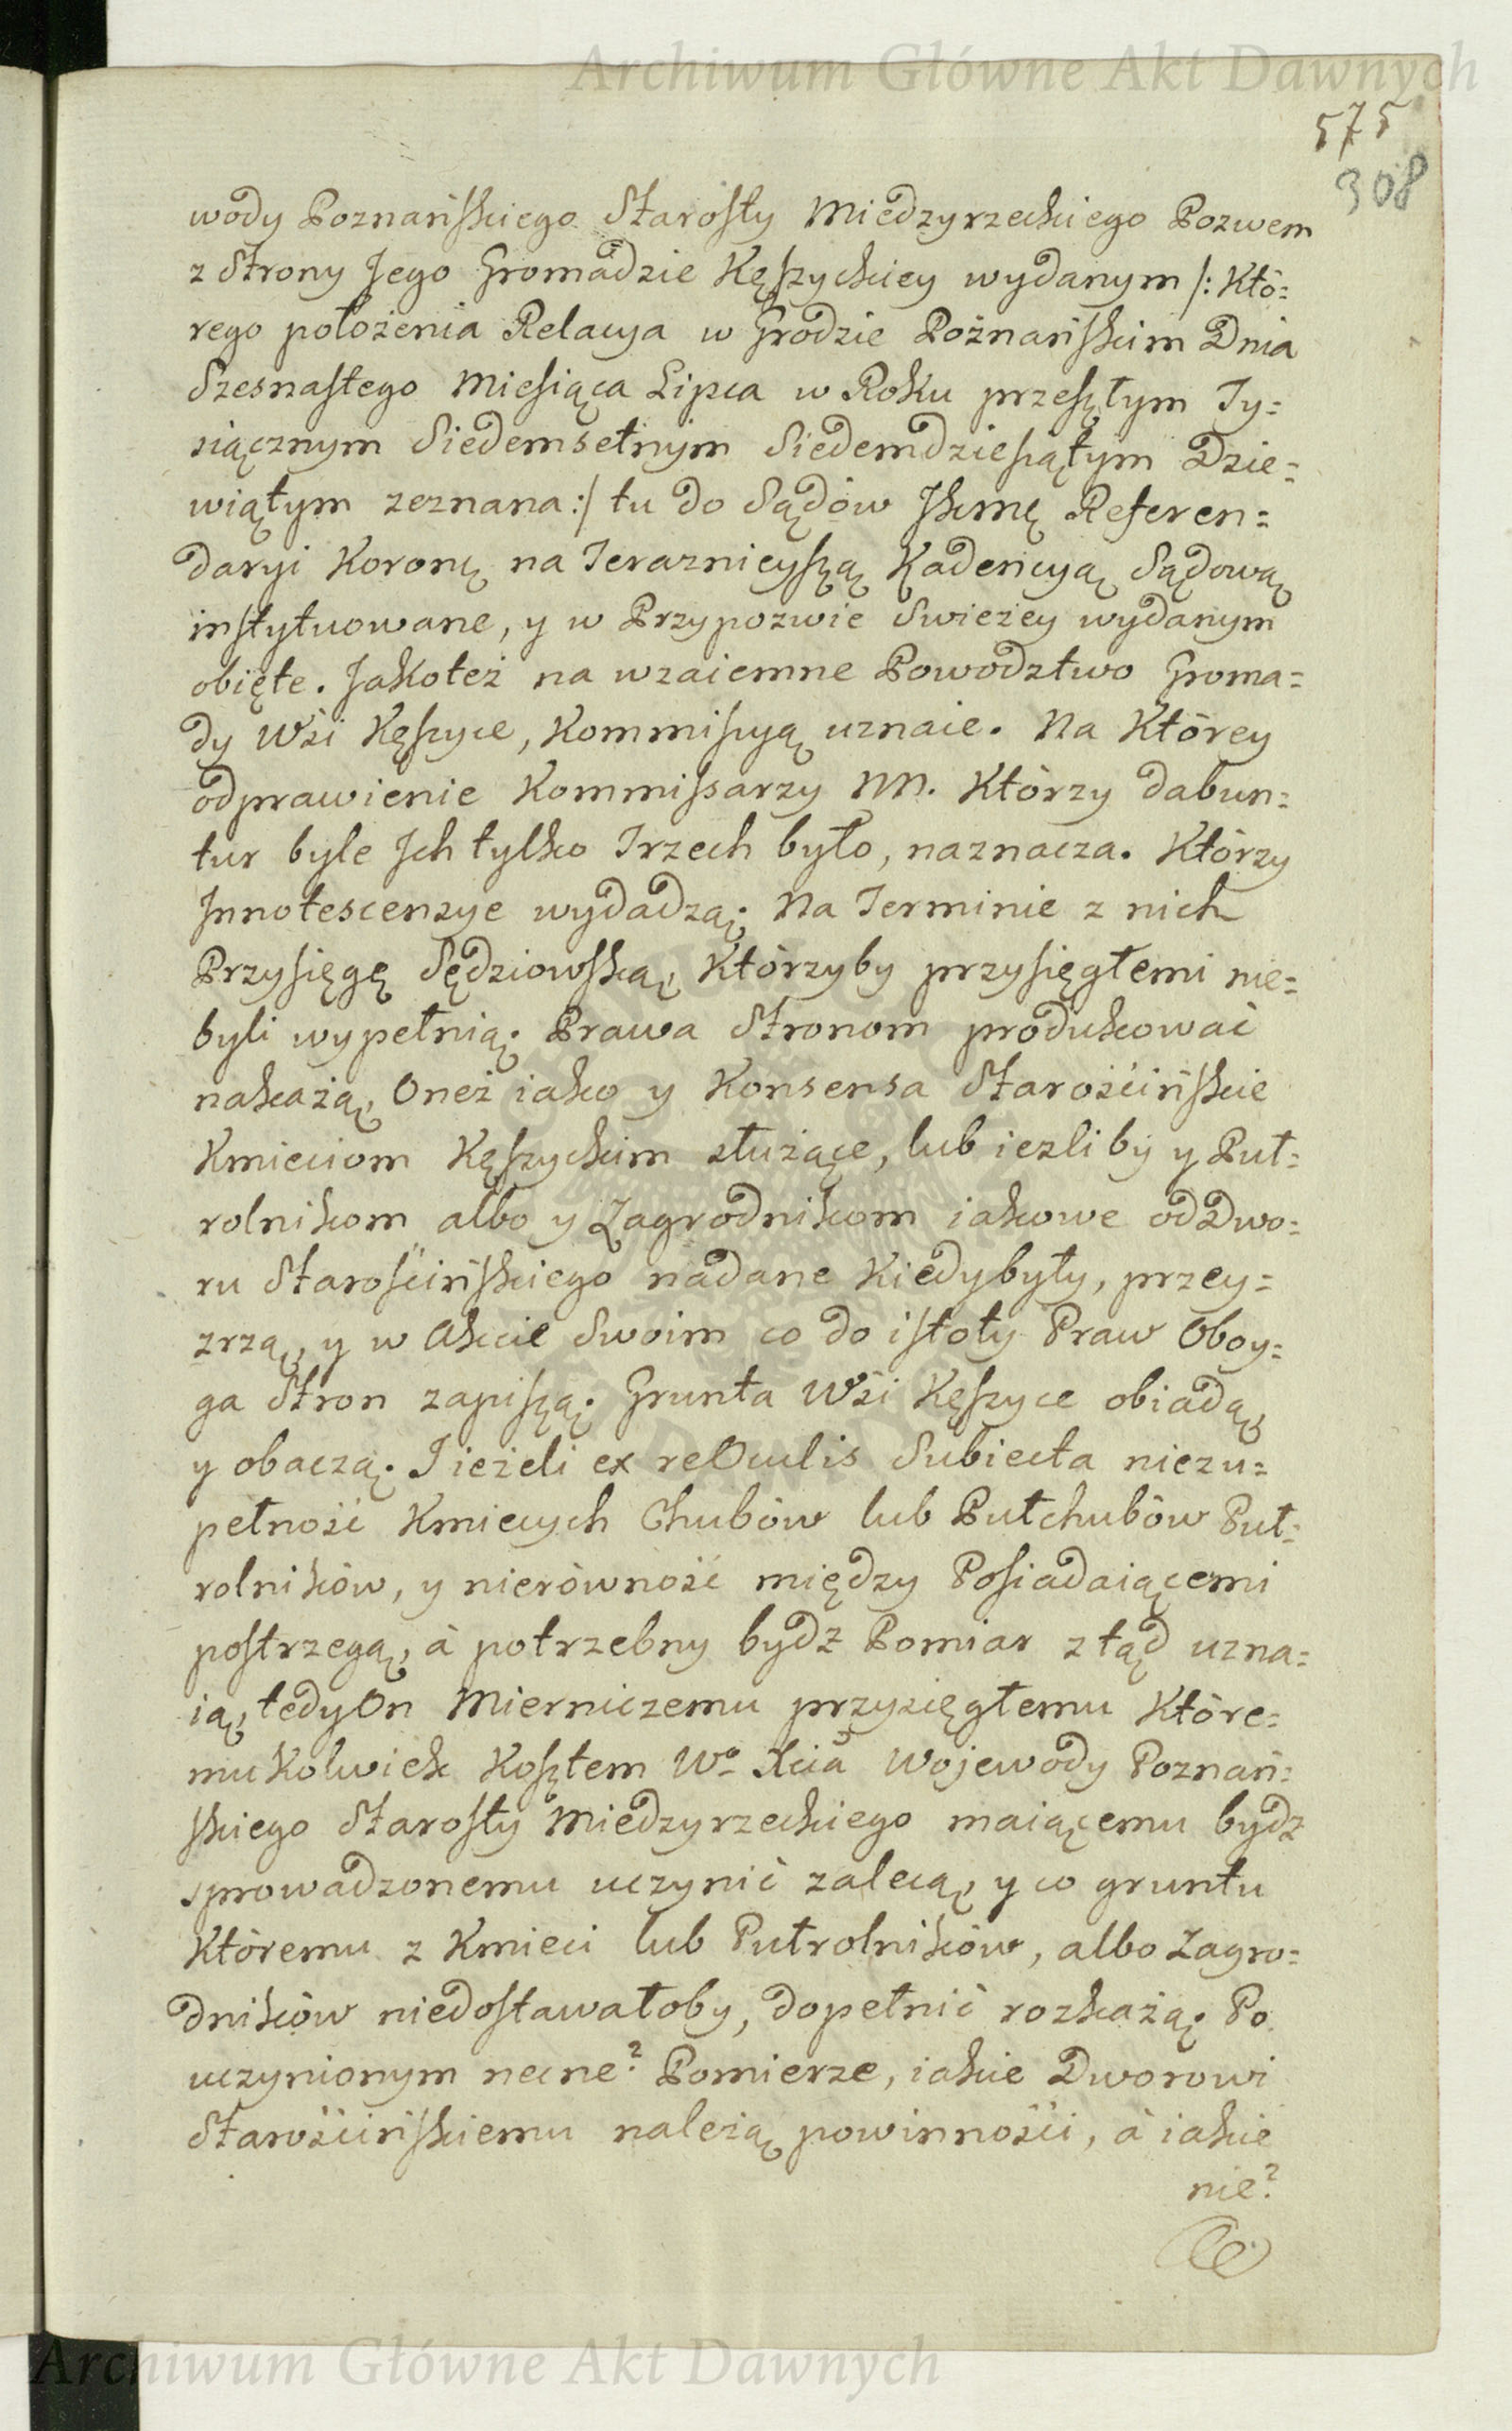 Archiwum Główne Akt Dawnych
575
308
wody Poznańskiego Starosty Miedzyrzeckiego Pozwem
z Strony Jego Gromadzie Kęszyckiey wydanym /: Któ=
rego położenia Relacya w Grodzie Poznańskim Dnia
Szesnastego Miesiąca Lipca w Roku przeszłym Ty=
siącznym Siedemsetnym Siedemdziesiątym Dzie=
wiątym zeznana :/ tu do Sądów Jkmę Referen=
daryi Koronę na Teraznieyszą Kadencyą Sądową
instytuowane, y w Przypozwie Swieżey wydanym
obięte. Jakoteż na wzaiemne Powodztwo Groma=
dy Wsi Kęszyce, Kommissyą uznaie. Na Którey
odprawienie Kommissarzy NN. Którzy dabun=
tur byle Jch tylko Trzech było, naznacza. Którzy
Jnnotescenzye wydadzą. Na Terminie z nich
Przysięgę Sędziowską, Którzyby przysięgłemi nie=
byli wypełnią. Prawa Stronom produkować
nakażą, Oneż iako y Konsensa Starościńskie
Kmieciom Kęszyckim służące, lub iezliby y Puł=
rolnikom albo y Zagrodnikom iakowe od Dwo=
ru Starościńskiego nadane Kiedy były, przey=
zrzą, y w Akcie Swoim co do istoty Praw Oboy=
ga Stron zapiszą. Grunta Wsi Kęszyce obiadą,
y obaczą. J ieżeli ex re Oculis Subiecta niezu=
pełność Kmiecych Chubów lub Pułchubów Puł=
rolników, y nierówność między Posiadaiącemi
postrzegą, à potrzebny bydz Pomiar ztąd uzna=
ią, tedy On Mierniczemu przysięgłemu Które=
mukolwiek Kosztem Wº Xcia Wojewody Poznań=
skiego Starosty Miedzyrzeckiego maiącemu bydz
sprowadzonemu uczynić zalecą, y co gruntu
Któremu z Kmieci lub Pułrolników, albo Zagro=
dników niedostawałoby, dopełnić rozkażą. Po
uczynionym necne? Pomierze, iakie Dworowi
Starościńskiemu należą powinności, à iakie
nie?
Archiwum Główne Akt Dawnych